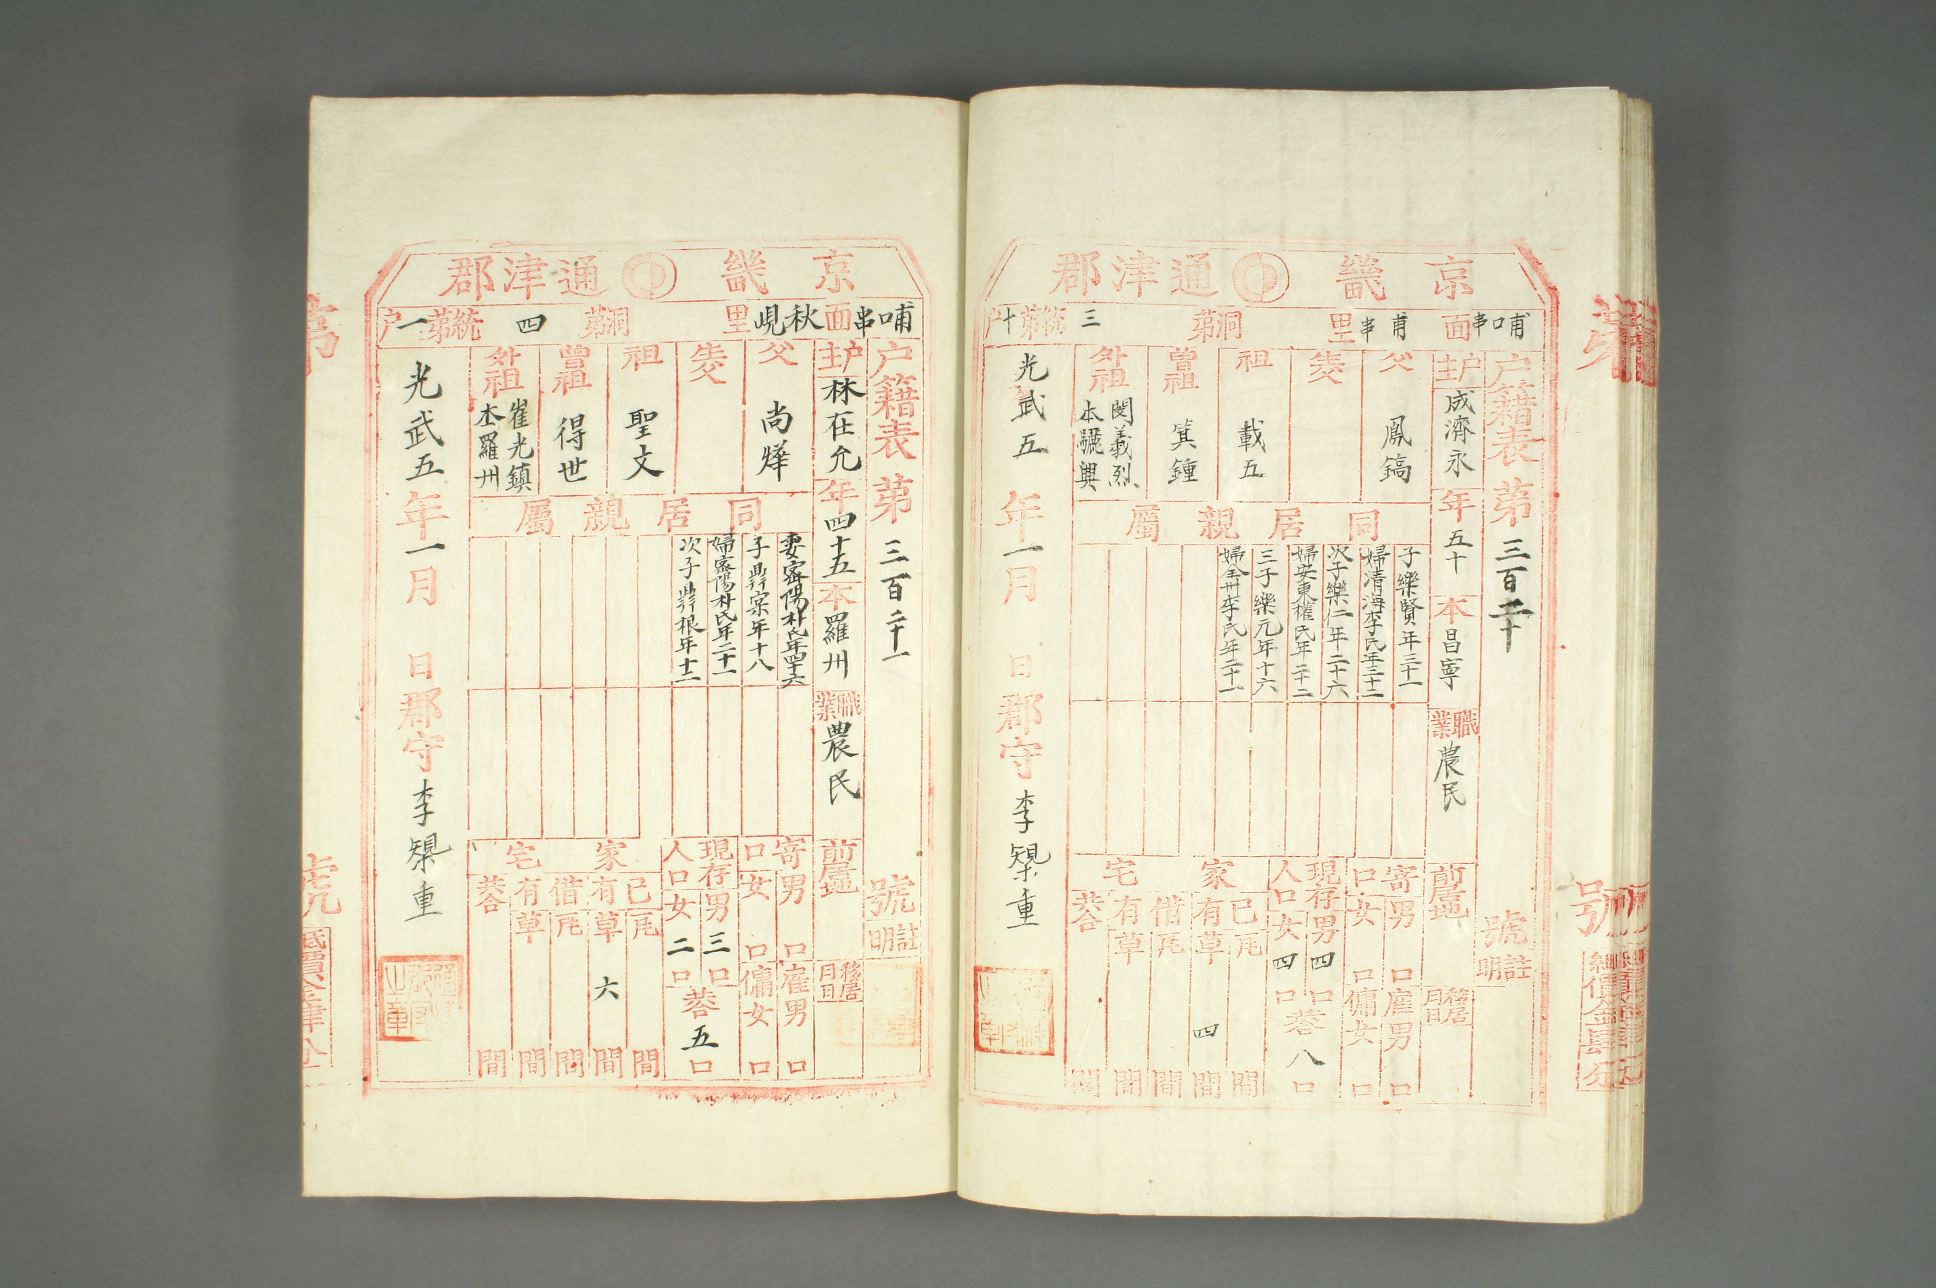 京畿 通津郡
哺串面 甫串里 洞第 三統第十戶
戶籍表 第三百二十 號
註明
戶主 成濟永 年五十 本昌寧 職業 農民 前居地 移居 月 日
父 鳳鎬
生父
祖 載五
曾祖 箕鍾
外祖 閔義烈 本驪興
同居親屬
子樂賢年三十一
婦清海李氏年三十二
次子樂仁年二十六
婦安東權氏年二十二
三子樂元年十六
婦全州李氏年二十一
寄口 男 口 女 口 雇 男 口 傭女 口
現存人口 男四口 女四口 共八口
家宅 己有 瓦 間 草 四間 借有 瓦 間 草 間 共 間
光武五年一月 日 郡守 李 重
京畿 通津郡
哺串面 秋峴里 洞第 四統第一戶
戶籍表 第三百二十一 號
註明
戶主 林在允 年四十五 本羅州 職業 農民 前居地 移居 月 日
父 尚燁
生父
祖 聖文
曾祖 得世
外祖 崔光鎮 本羅州
同居親屬
妻密陽朴氏年四十六
子 宗年十八
婦密陽朴氏年二十一
次子 根年十二
寄口 男 口 女 口 雇男 口 傭女 口
現存人口 男三口 女二口 共五口
家宅 己有 瓦 間 草 六間 借有 瓦 間 草 間 共 間
光武五年一月 日 郡守 李 重